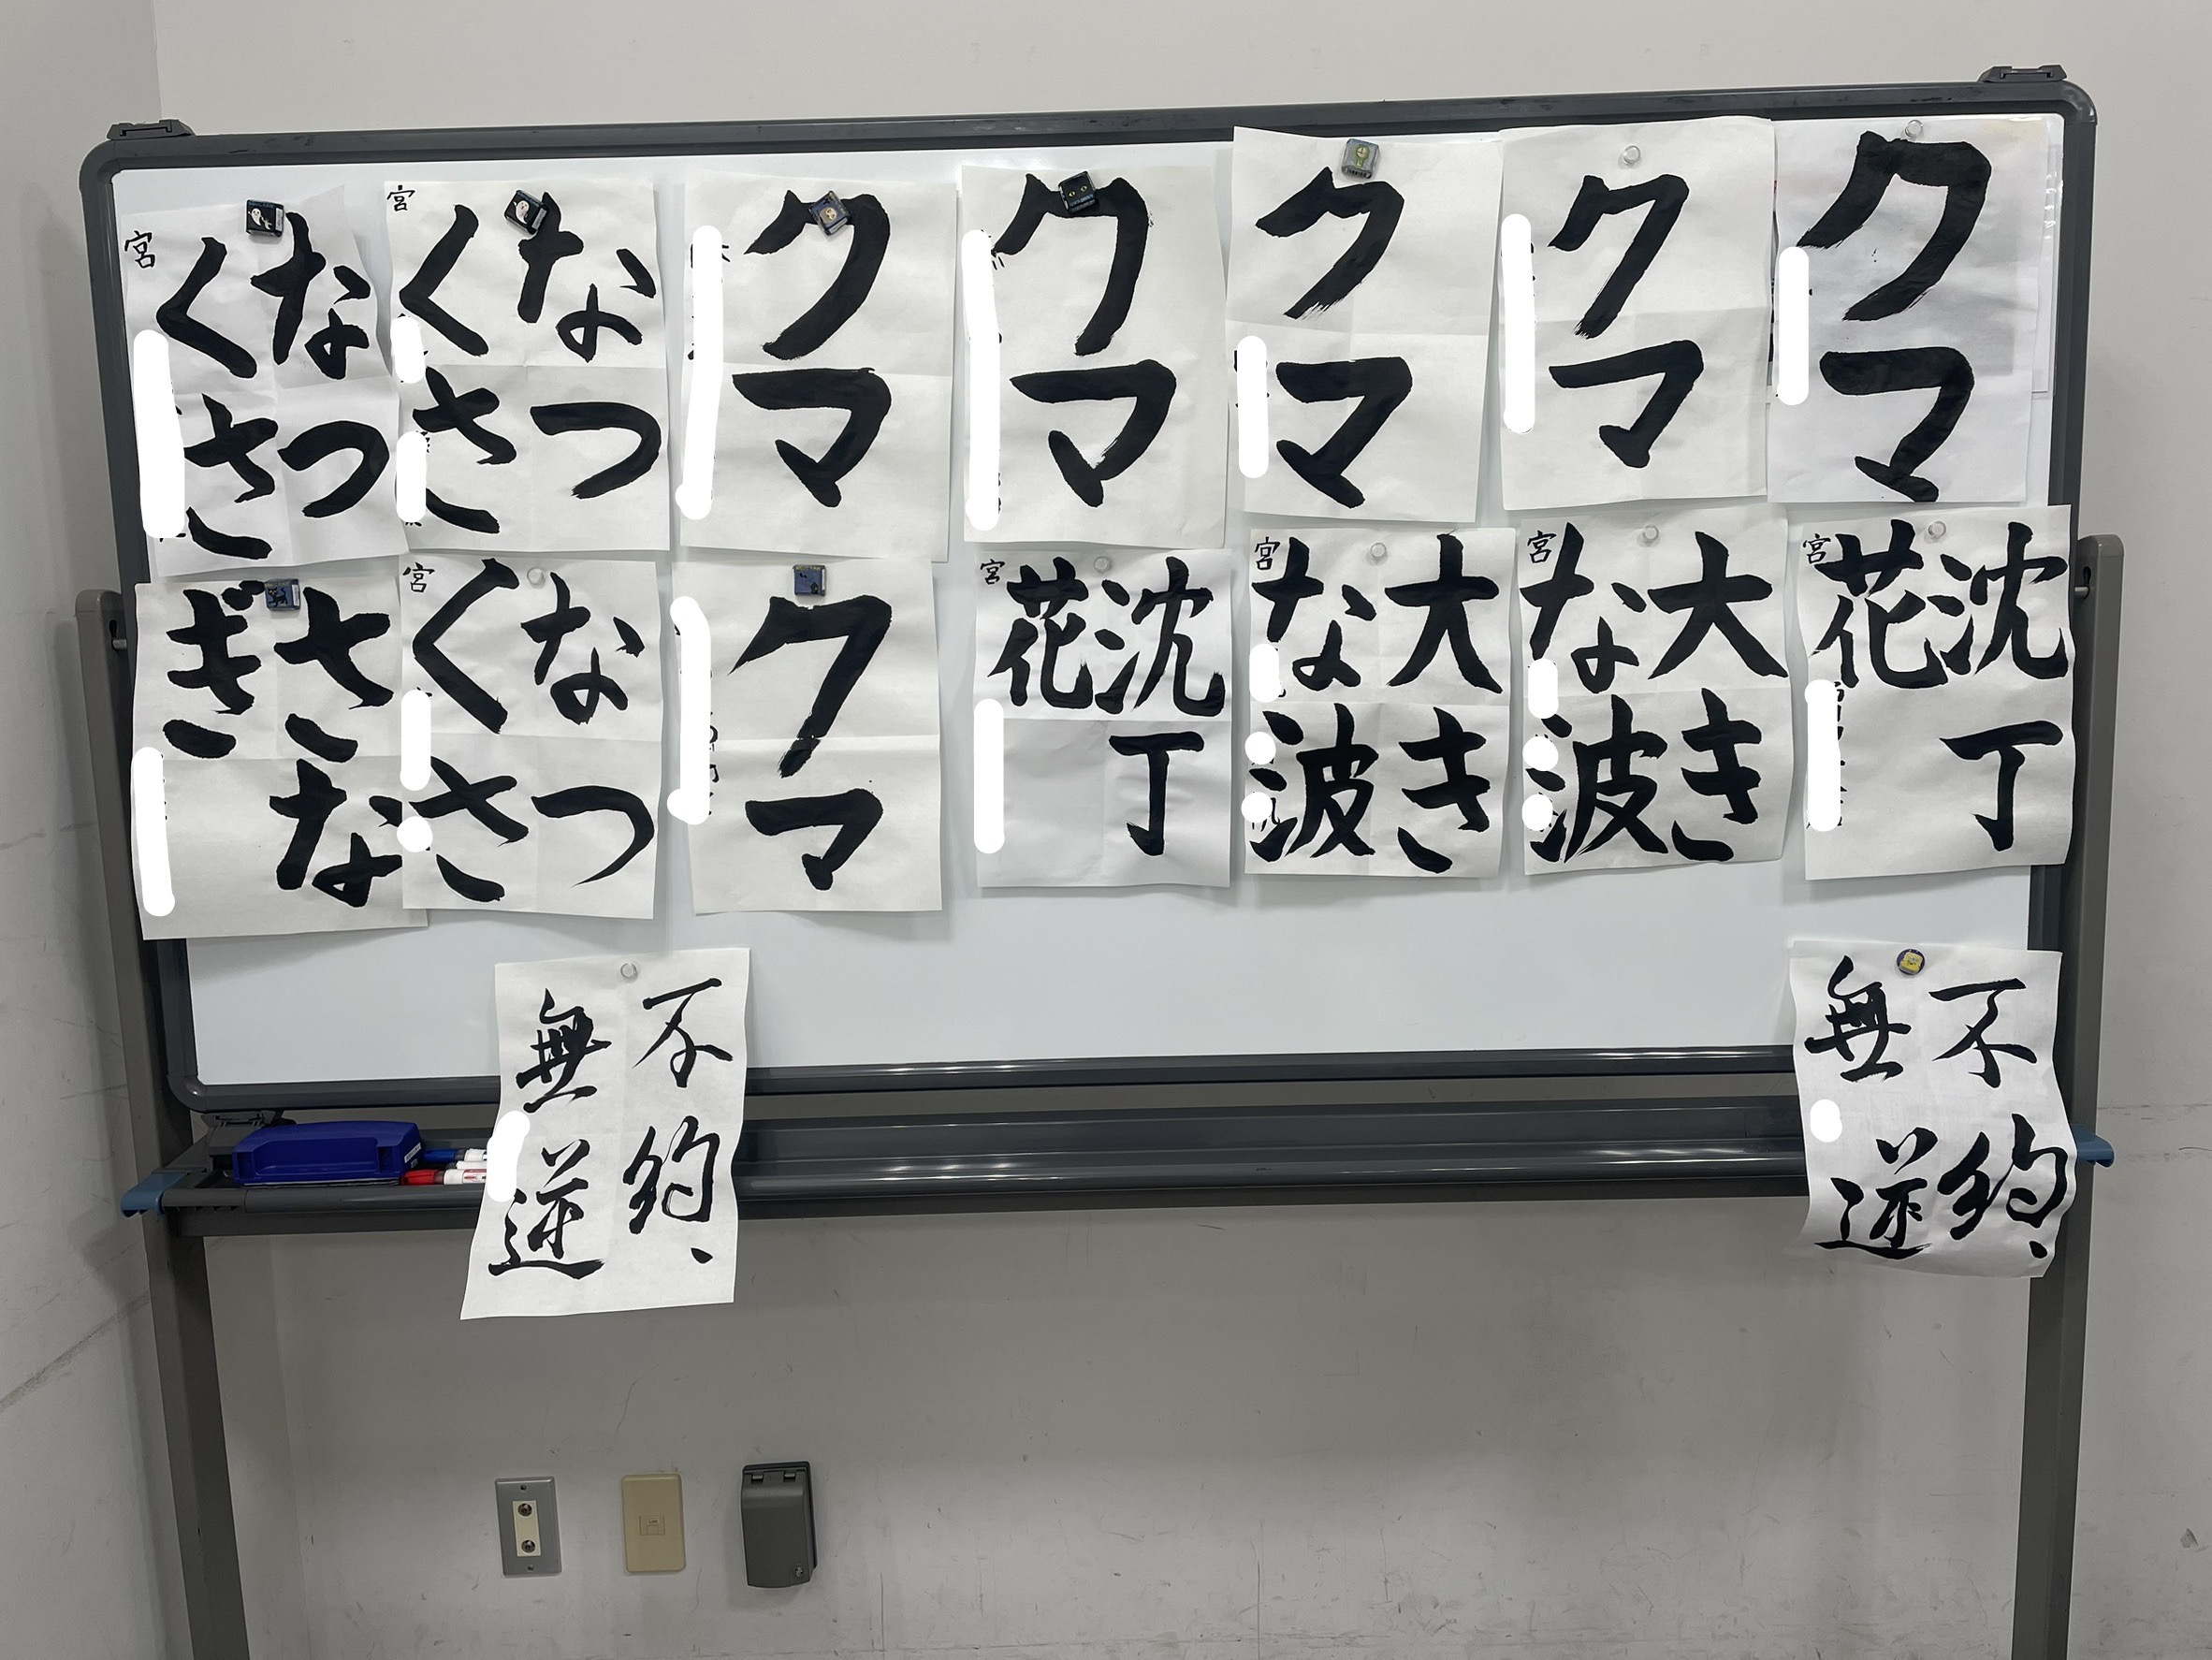 クマ
クマ
クマ
クマ
クマ
なつ
くさ
宮
なつ
くさ
宮
沈丁
花
宮
大き
な波
宮
大き
な波
宮
沈丁
花
宮
クマ
なつ
くさ
宮
さな
ぎ
不約、
無逆
不約、
無逆